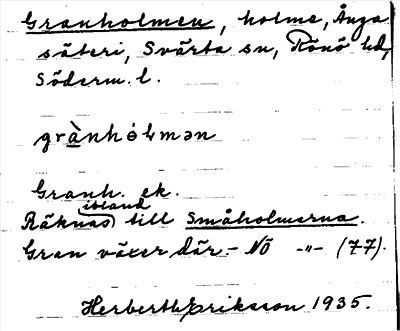 Granholmen, holme, Ånga
säteri, Svärta sn, Rönö hd,
Söderm. l.
grànhòlmən
Granh. ek.
ibland
Räknas till Småholmarna.
Gran växer där. - NÖ -"- (77).
Herberth Eriksson 1935.